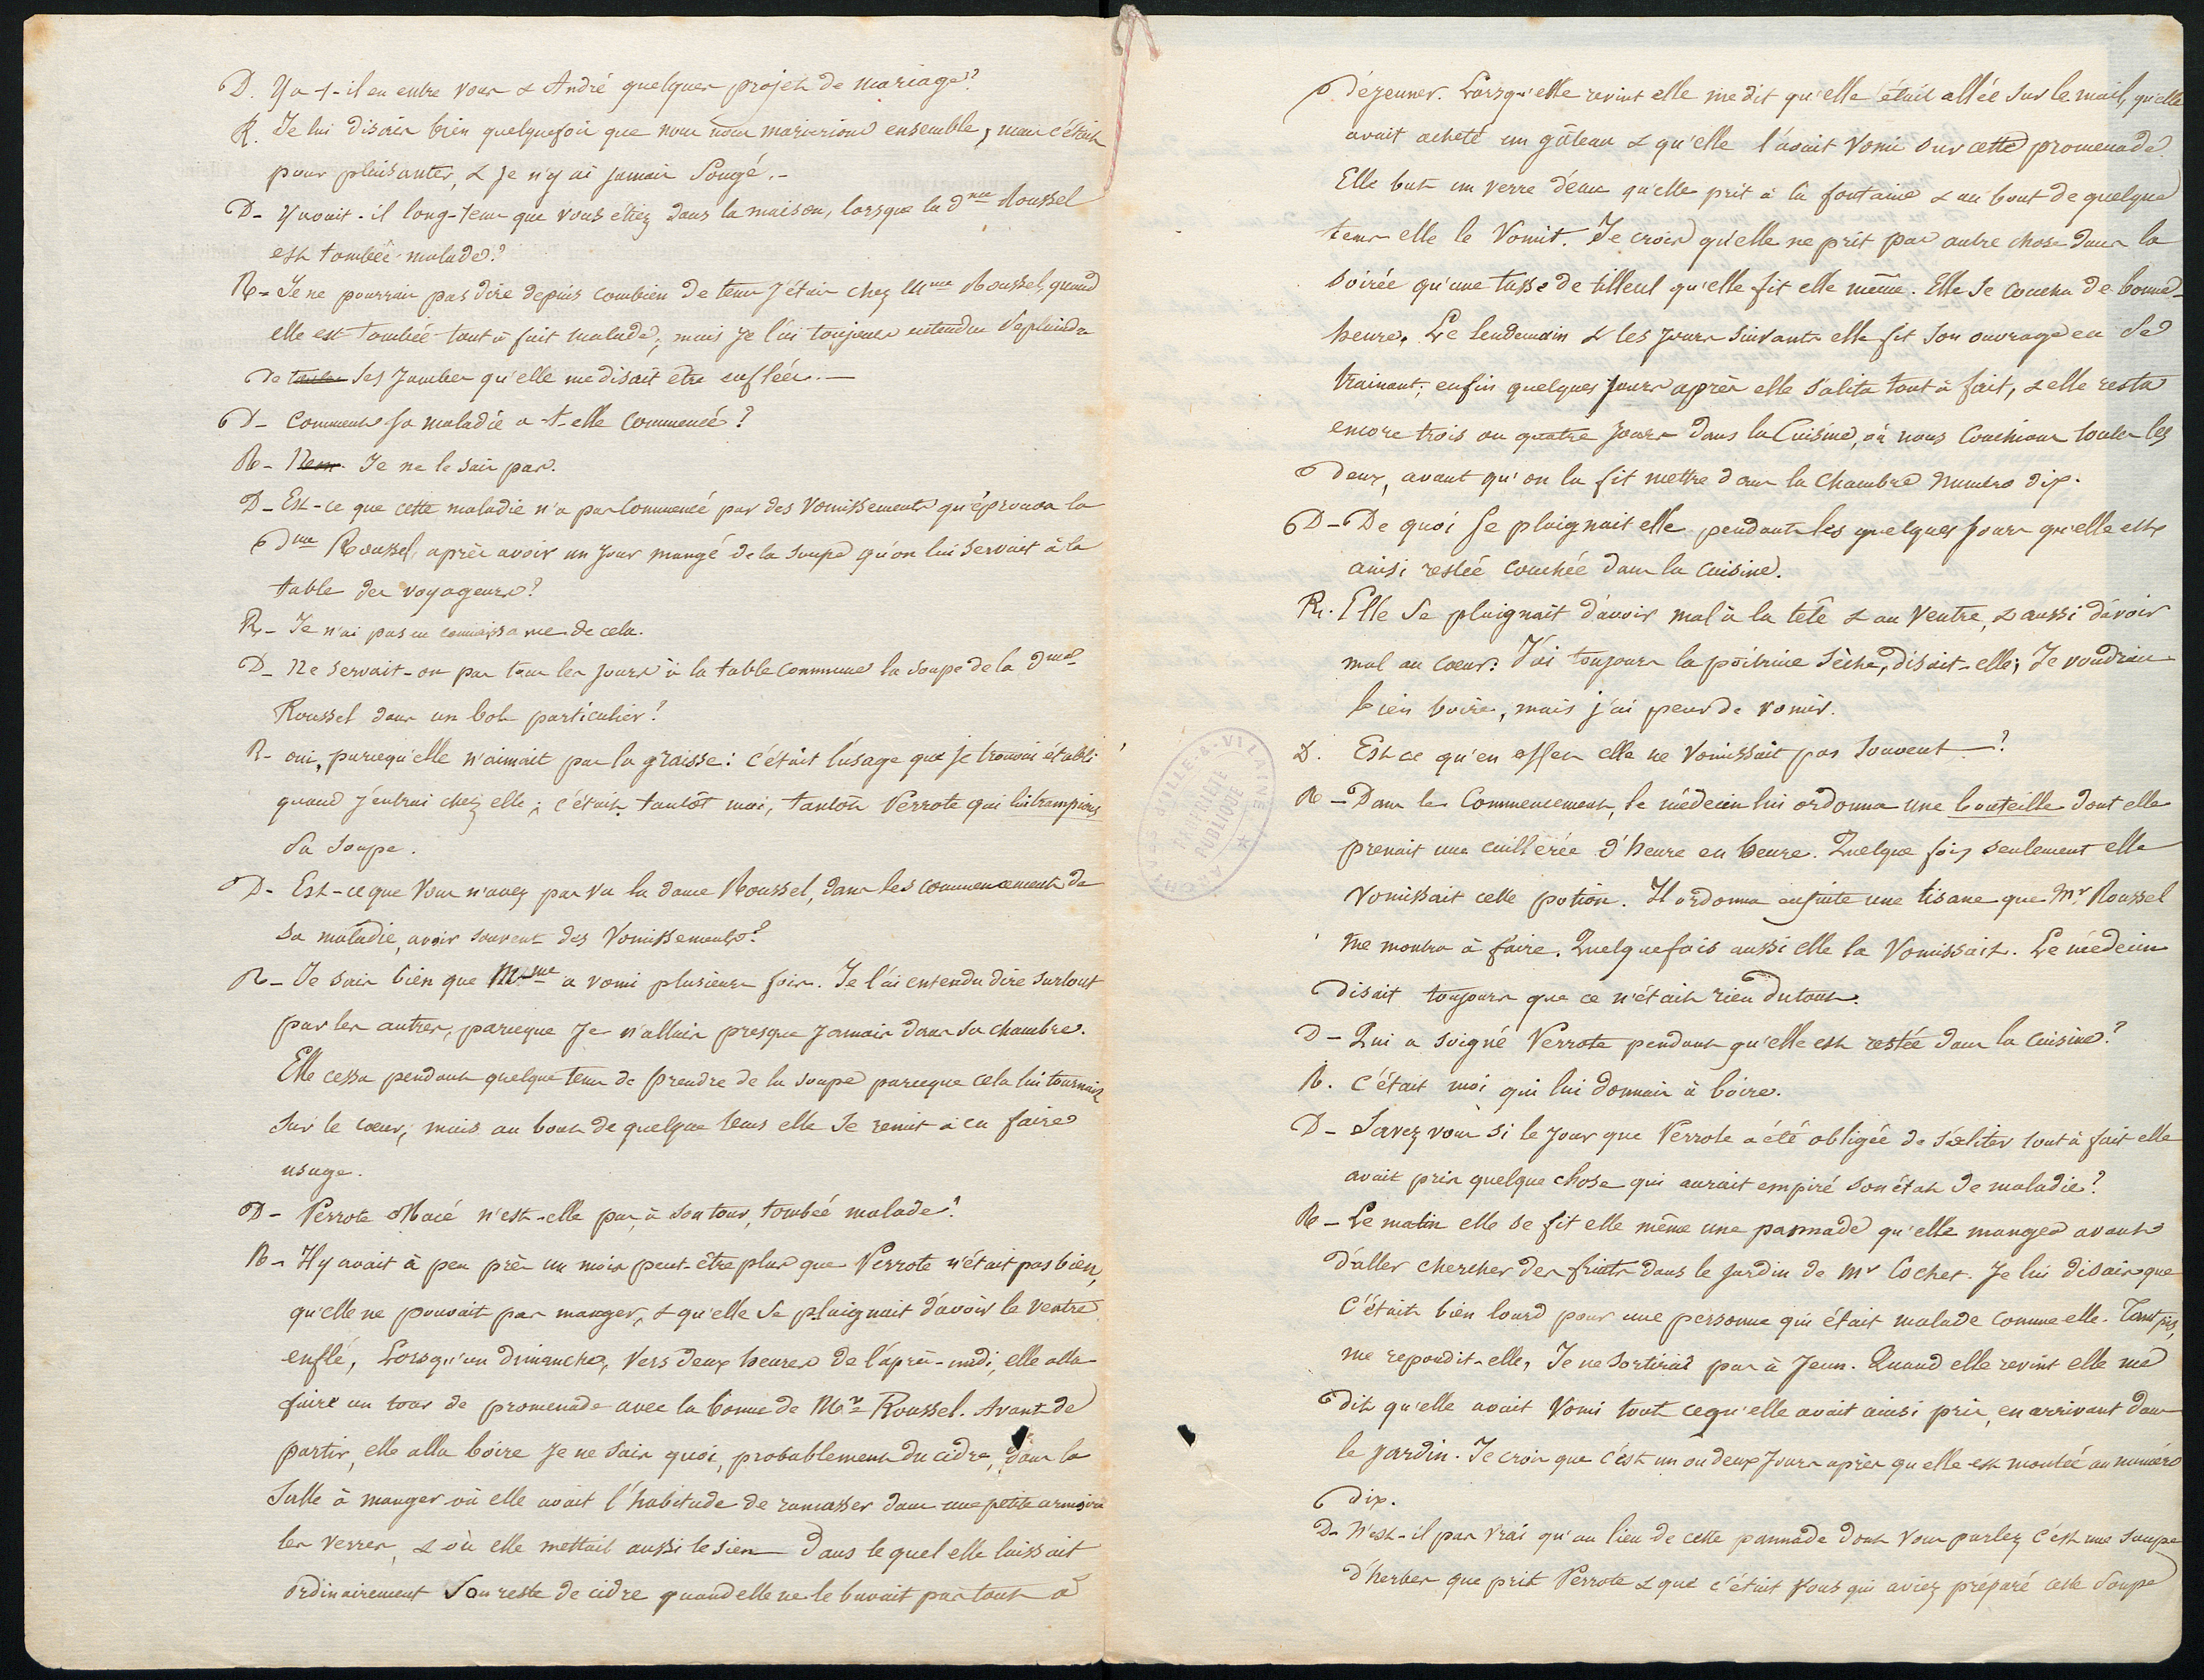 D. Y a-t-il eu entre vous & André quelques projets de mariage?
R. Je lui disais bien quelquefois que nous nous marierions ensemble, mais c'était
pour plaisanter, & je n'y ai jamais songé.-
D- Y avait-il long-tems que vous étiez dans la maison, lorsque la dme Roussel
est tombée malade?
R- Je ne pourrais pas dire depuis combien de tems j'étais chez Mme Roussel, quand
elle est tombée tout à fait malade, mais je l'ai toujours entendu se plaindre
de ses jambes qu'elle me disait être enflées.-
D- Comment sa maladie a-t-elle commencé?
R- Je ne le sais pas.
D- Est-ce que cette maladie n'a pas commencé par des vomissements qu'éprouva la
dme Roussel, après avoir un jour mangé de la soupe qu'on lui servait à la
table des voyageurs?
R- Je n'ai pas eu connaissance de cela.
D- Ne servait-on pas tous les jours à la table commune la soupe de la dme
Roussel dans un bol particulier?
R- oui, parcequ'elle n'aimait pas la graisse: c'était l'usage que je trouvai établi
quand j'entrai chez elle; c'était tantôt moi, tantôt Perrote qui lui trampions
sa soupe.
D- Est-ce que vous n'avez pas vu la dame Roussel, dans les commencements de
sa maladie, avoir souvent des vomissements?
R- Je sais bien que Mme a vomi plusieurs fois. Je l'ai entendu dire surtout
par les autres, parceque je n'allais presque jamais dans sa chambre.
Elle cessa pendant quelque tems de prendre de la soupe parceque cela lui tournait
sur le cœur, mais au bout de quelque tems elle se remit à en faire
usage.
D- Perrote Macé n'est-elle pas, à son tour, tombée malade?
R- Il y avait à peu près un mois peut-être plus que Perrote n'était pas bien,
qu'elle ne pouvait pas manger, & qu'elle se plaignait d'avoir le ventre
enflé, Lorsqu'un dimanche, vers deux heures de l'après-midi, elle alla
faire un tour de promenade avec la bonne de Mr Roussel. Avant de
partir, elle alla boire je ne sais quoi, probablement du cidre, dans la
salle à manger où elle avait l'habitude de ramasser dans une petite armoire
les verres, & où elle mettait aussi le sien dans lequel elle laissait
ordinairement son reste de cidre quand elle ne le buvait pas tout à
déjeuner. Lorsqu'elle revint elle me dit qu'elle était allée sur le mail, qu'elle
avait acheté un gâteau & qu'elle l'avait vomi sur cette promenade.
Elle but un verre d'eau qu'elle prit à la fontaine & au bout de quelque
tems elle le vomit. Je crois qu'elle ne prit pas autre chose dans la
soirée qu'une tasse de tilleul qu'elle fit elle même. Elle se coucha de bonne
heure. Le lendemain & les jours suivants elle fit son ouvrage en se
trainant; enfin quelques jours après elle s'alita tout à fait, & elle resta
encore trois ou quatre jours dans la cuisine, où nous couchions toutes les
deux, avant qu'on la fit mettre dans la chambre numéro dix.
D- De quoi se plaignait elle pendant les quelques jours qu'elle est
ainsi restée couchée dans la cuisine.
R. Elle se plaignait d'avoir mal à la tête & au ventre, & aussi d'avoir
mal au cœur: J'ai toujours la poitrine sèche, disait-elle; Je voudrais
bien boire, mais j'ai peur de vomir.
D. Est ce qu'en effet elle ne vomissait pas souvent?
R- Dans les commencements, le médecin lui ordonna une bouteille dont elle
prenait une cuillerée d'heure en heure. Quelque fois seulement elle
vomissait cette potion. Il ordonna ensuite une tisane que Mr Roussel
me montra à faire. Quelquefois aussi elle la vomissait. Le médecin
disait toujours que ce n'était rien du tout.
D- Qui a soigné Perrote pendant qu'elle est restée dans la cuisine?
R. C'était moi qui lui donnais à boire.
D- Savez vous si le jour que Perrote a été obligée de s'aliter tout à fait elle
avait pris quelque chose qui aurait empiré son état de maladie?
R- Le matin elle se fit elle même une pannade qu'elle mangea avant
d'aller chercher des fruits dans le jardin de Mr Cochet. Je lui disais que
c'était bien lourd pour une personne qui était malade comme elle. Tant pis,
me repondit-elle, Je ne sortirai pas à jeun. Quand elle revint elle me
dit qu'elle avait vomi tout ce qu'elle avait ainsi pris, en arrivant dans
le jardin. Je crois que c'est un ou deux jours après qu'elle est montée au numéro
dix.
D- N'est-il pas vrai qu'au lieu de cette pannade dont vous parlez c'est une soupe
d'herbes que prit Perrote & que c'était vous qui aviez préparé cette soupe
ILLE-&-VILAINE
PROPRIÉTÉ
PUBLIQUE